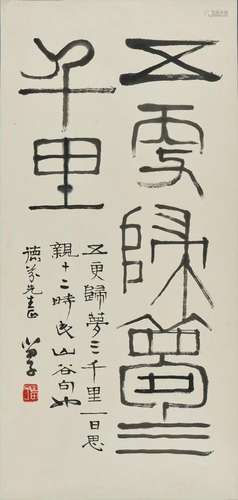 五更歸夢三
千里
五更歸夢三千里一日思
親十二時此山谷句也
先生